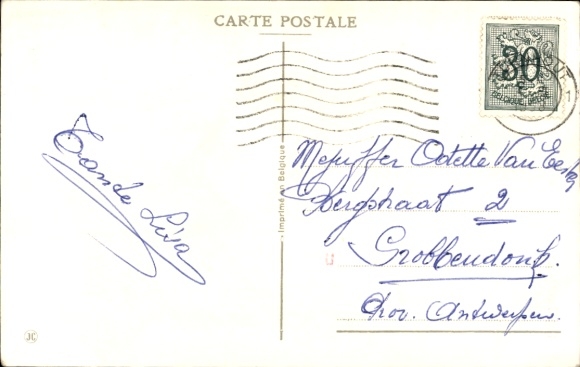 CARTE POSTALE
30
BELGIQUE-BELGIE
Tante Lisa
Imprimé en Belgique
Mejuffer Odette Van Eeck
Bergstraat 2
Grobbendonk
Prov. Antwerpen
JC